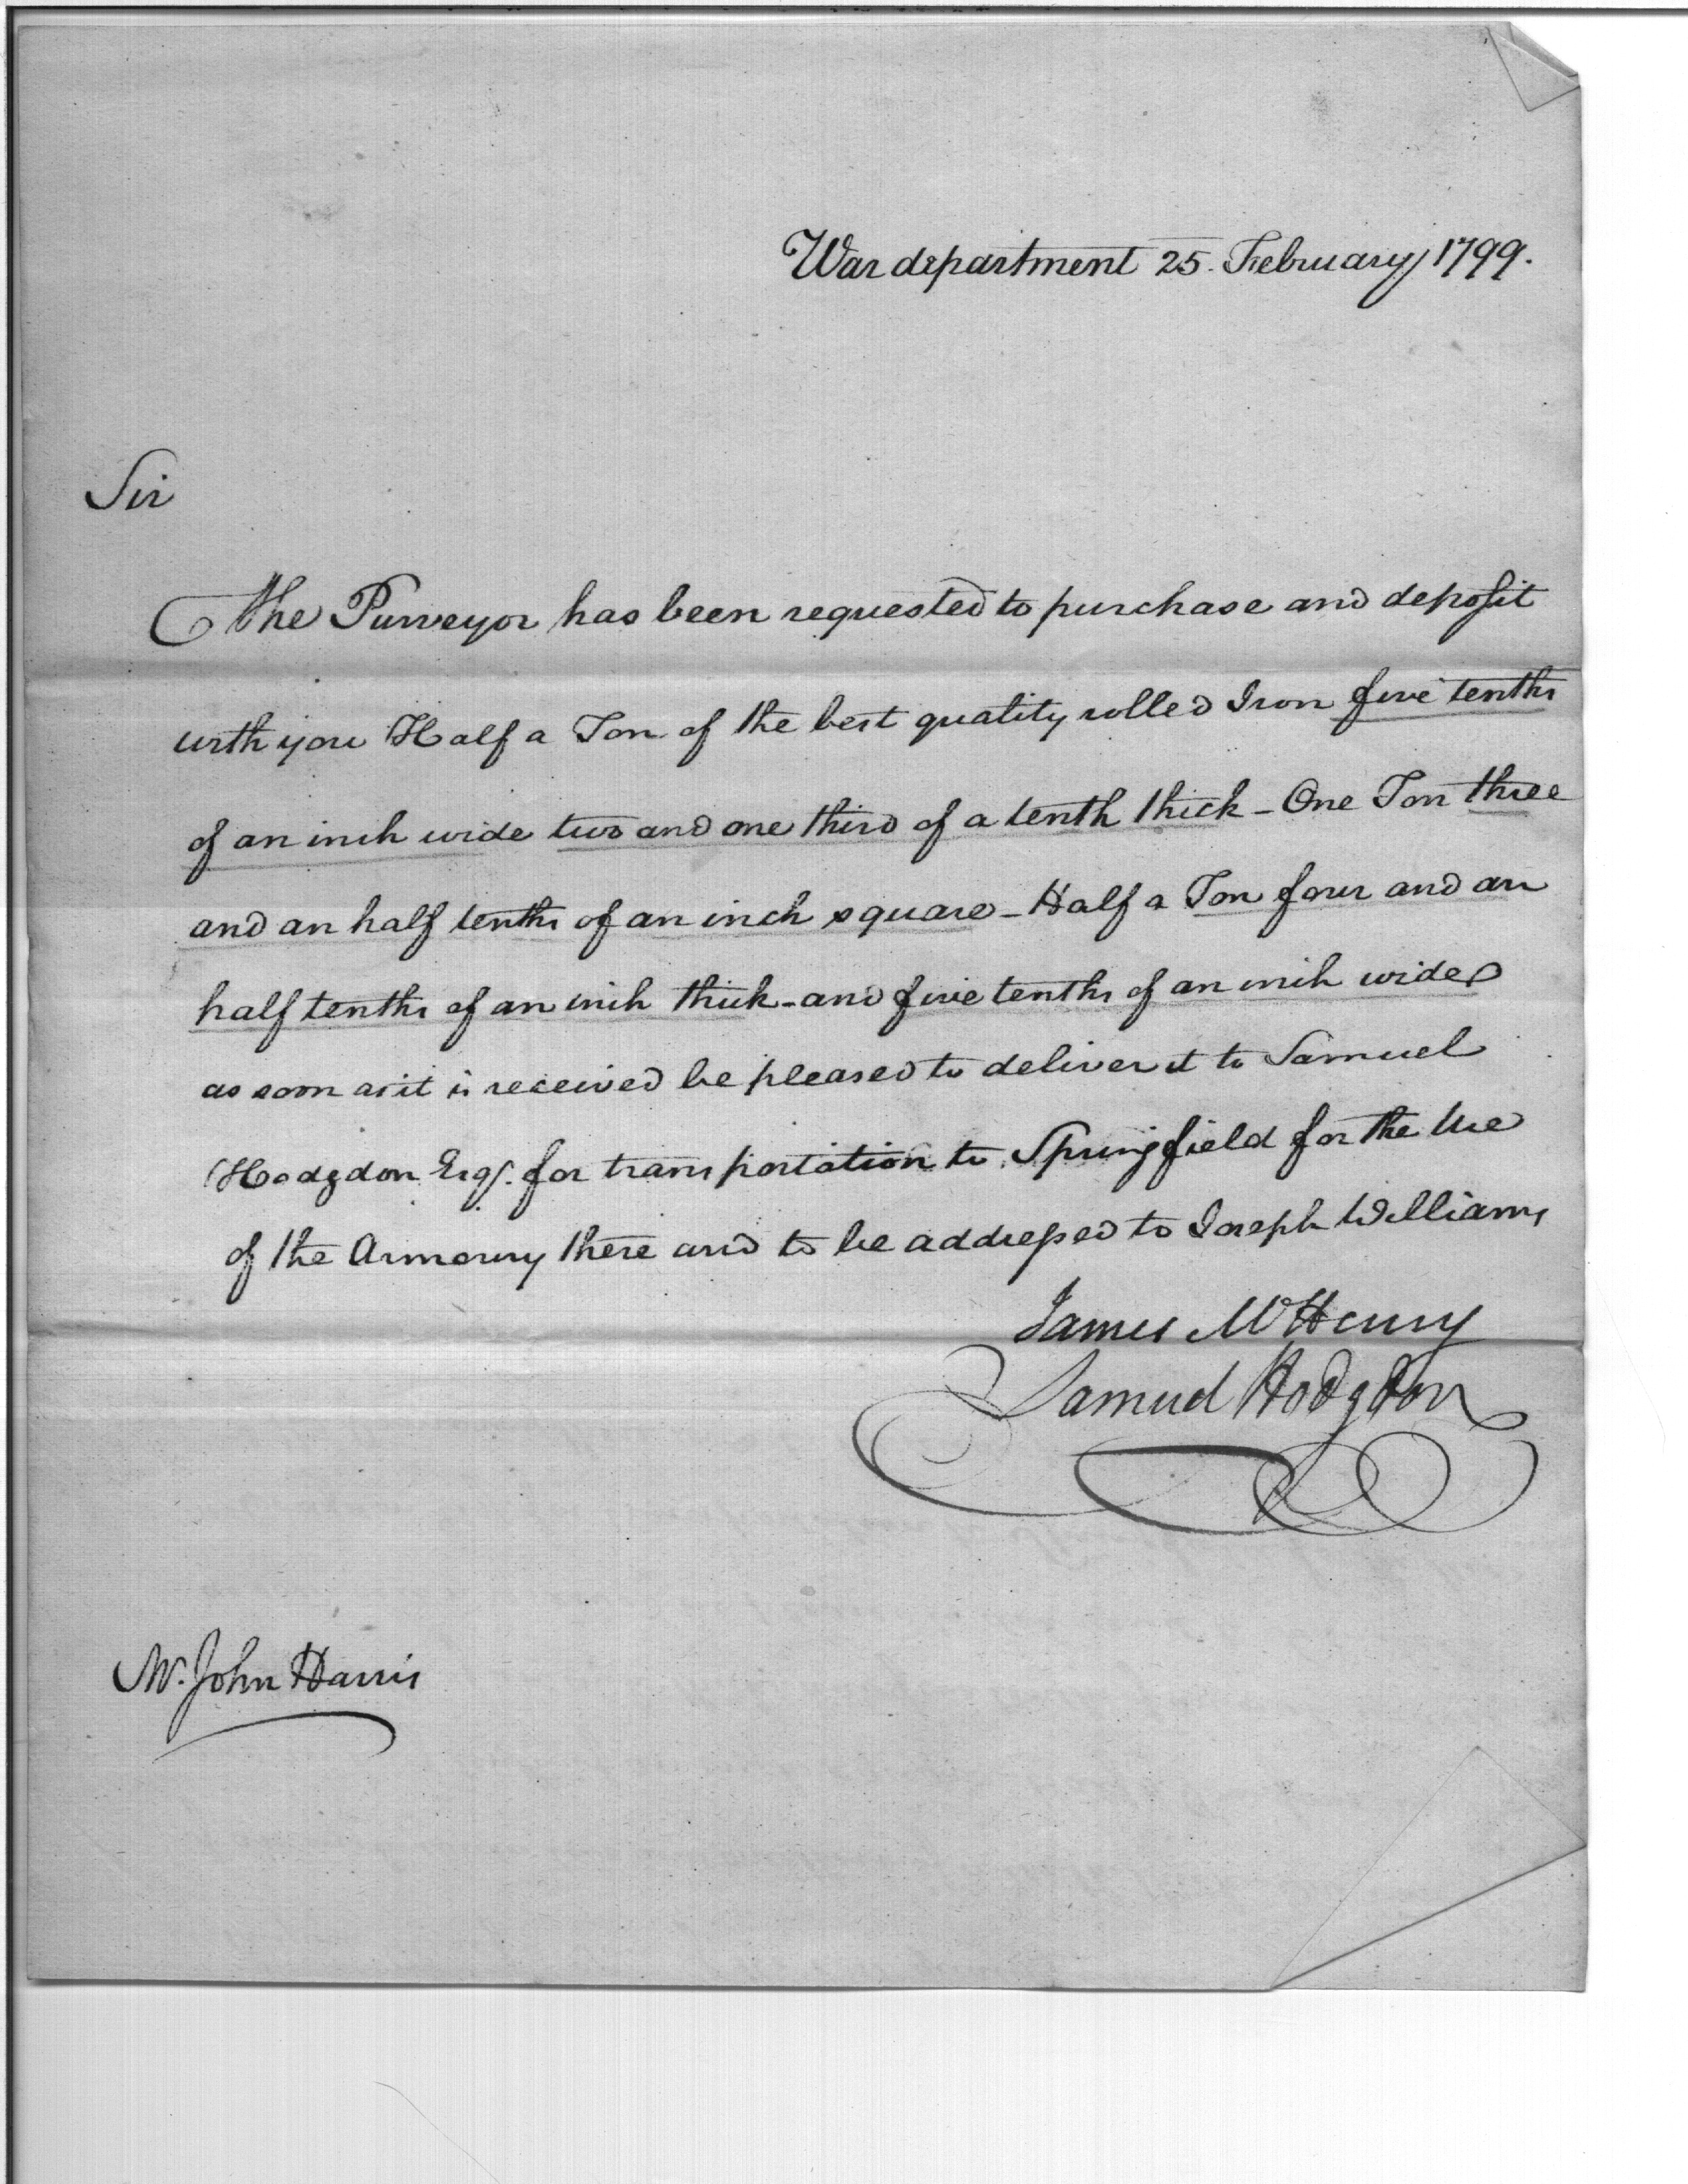 War department 25. February 1799.
Sir
The Purveyor has been requested to purchase and deposit
with you Half a Ton of the best quality rolled Iron five tenths
of an inch wide two and one third of a tenth thick - One Ton three
and an half tenths of an inch square - Half a Ton four and an
half tenths of an inch thick - and five tenths of an inch wide
as soon as it is received be pleased to deliver it to Samuel
Hodgdon Esqr. for transportation to Springfield for the Use
of the Armoury there and to be addressed to Joseph Williams
James McHenry
Samuel Hodgdon
Mr. John Harris